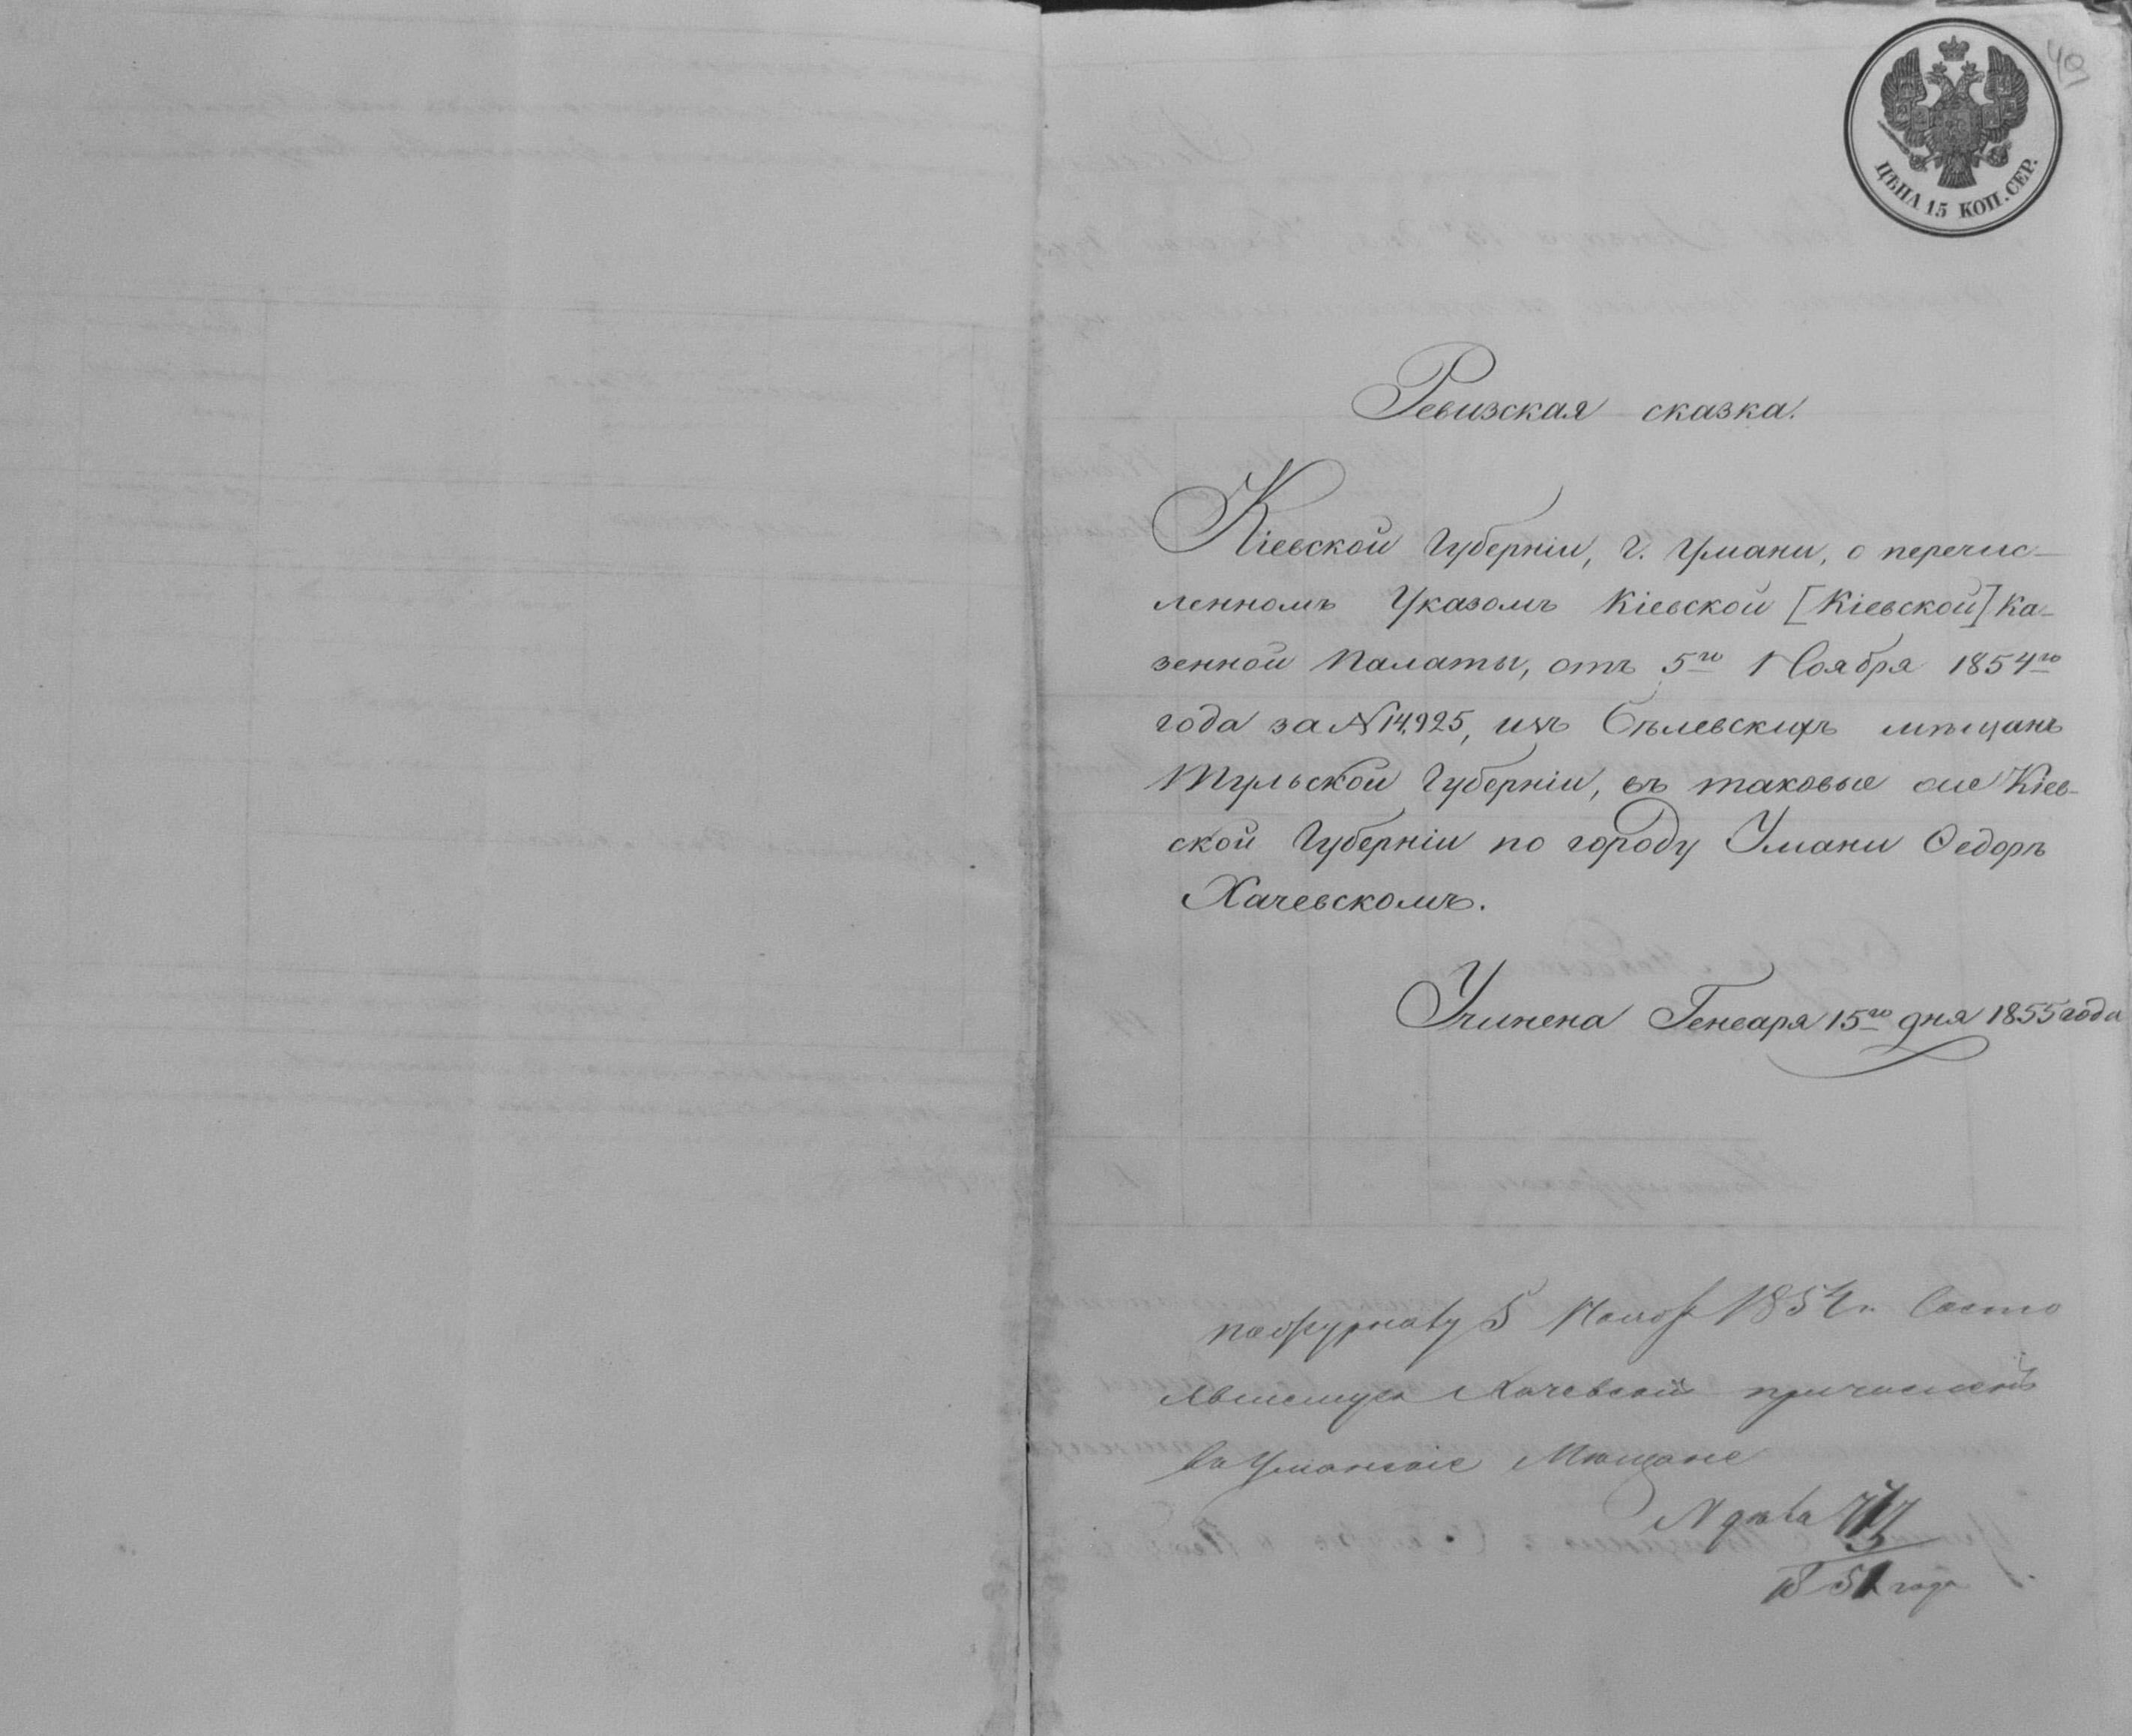 401
ЦѢНА 15 КОП. СЕР.
Ревизская сказка.
Кіевской Губерніи, г. Умани, о перечис-
ленномъ Указомъ Кіевской [Кіевской] Ка-
зенной Палаты, отъ 5го Ноября 1854го
года за № 14,925, изъ Бѣлевскихъ мѣщанъ
Тульской Губерніи, въ таковые же Кіев-
ской Губерніи по городу Умани Ѳедоръ
Хачевскомъ.
Учинена Генваря 15го дня 1855 года
по журналу 5 Нояб 1854 г. Состо
явшемуся Хачевскій причисленъ
въ Уманскіе Мѣщане
N дѣла
185 года